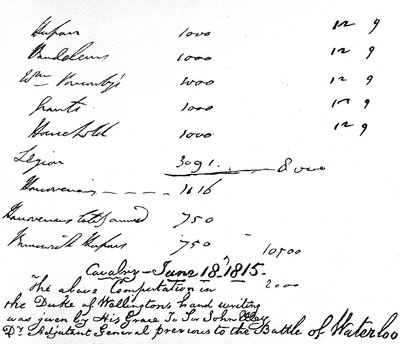 Hussars 1000 12 9
Vandeleurs 1000 12 9
Wm Ponsonby's 1000 12 9
Grants 1000 12 9
Household 1000 12 9
Legion 3091. 8000
Hanoverians 1616
Hanoverians 750
Brunswick Hussars 750 10500
Cavalry - June 18th 1815.
The above Computation in 2000
the Duke of Wellingtons hand writing
was given by His Grace To Sir John Elley
Dy Adjutant General previous to the Battle of Waterloo